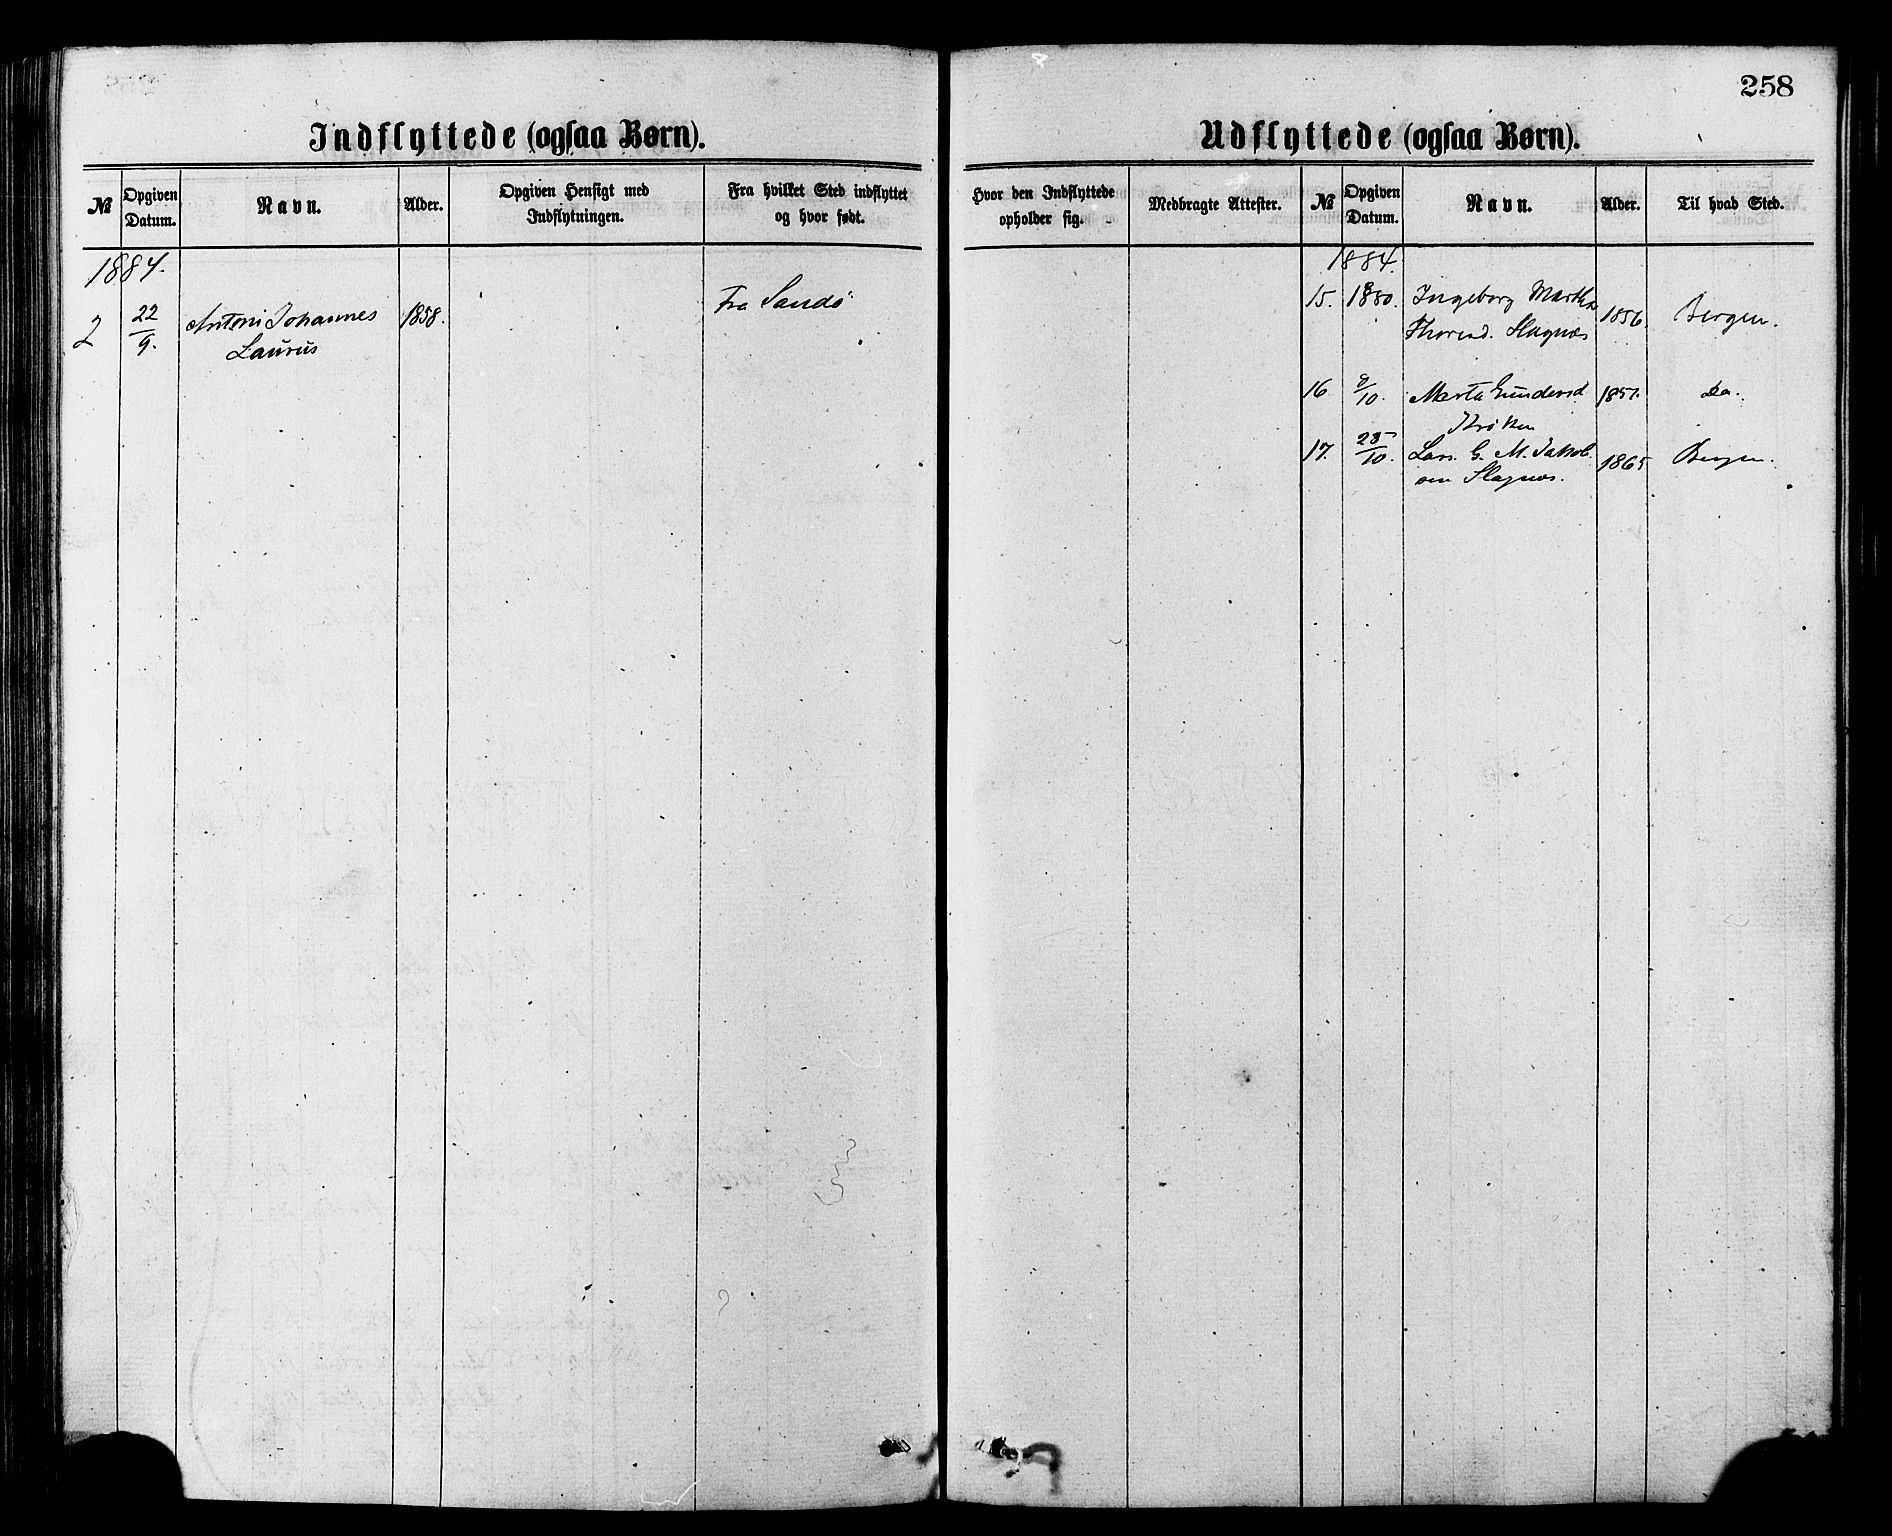 258
Indflyttede (ogsaa Børn).
№
Opgiven Datum.
Navn.
Alder.
Opgiven Hensigt med Indflytningen.
Fra hvilket Sted indflyttet og hvor født.
1884.
2
22/9.
Antoni Johannes
Laurus
1858.
Fra Sandø
Udflyttede (ogsaa Børn).
Hvor den Indflyttede opholder sig.
Medbragte Attester.
№
Opgiven Datum.
Navn.
Alder.
Til hvad Sted.
1884.
15. 1880. Ingeborg Martha
Thoresd. Slagnæs 1856. Bergen.
16. 9/10. Marta Gundersd 1857. Do.
Krøken
17. 25/10. Lars G. M. Jakob
sen Slagnæs. 1865 Bergen.